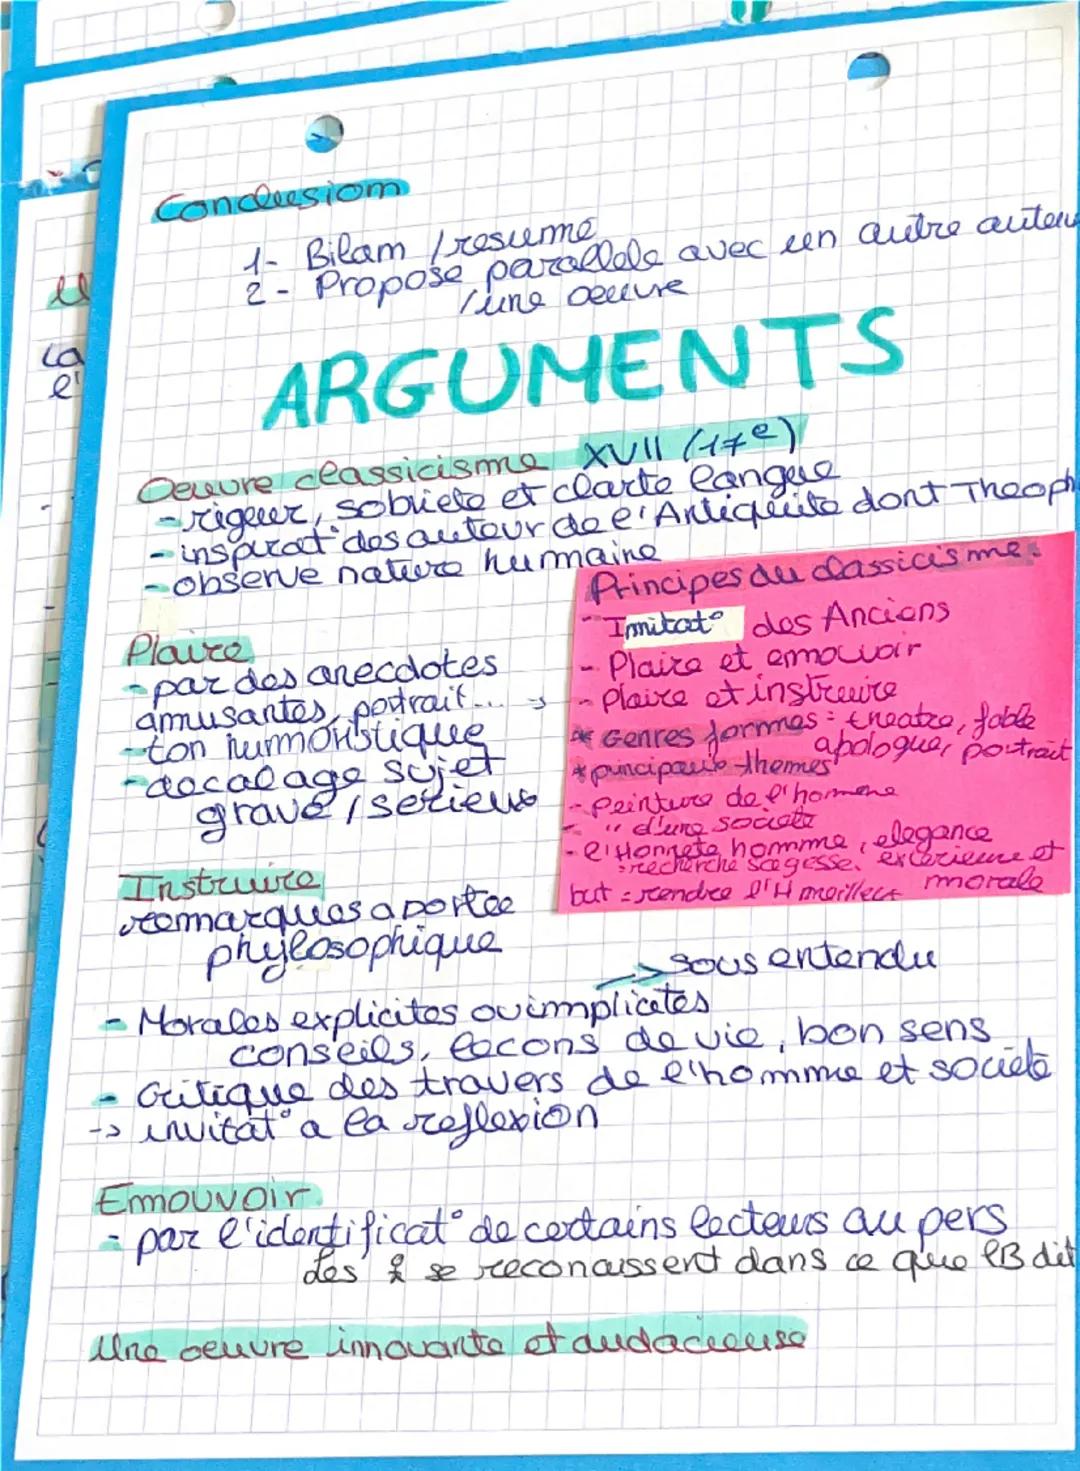 Conclusion
1- Bilan / resume
2- Propose parallele avec un autre auteu
/ une oeuvre
ARGUMENTS
Oeuvre classicisme XVII (17e)
- rigueur, sobriete et clarte langue
- inspirat° des auteur de l'Antiquite dont Theoph
- observe nature humaine
Plaire
- par des anecdotes
amusantes, portrait... →
- ton humoristique
- decalage sujet
grave / serieux
Principes du classicisme:
- Imitat° des Anciens
- Plaire et emouvoir
- Plaire et instruire
* Genres formes = theatre, fable
apologue, portrait
* principaux themes
- peinture de l'homme
- " d'une societe
- l'Honnete homme, elegance
: recherche sagesse, exterieure et
morale
but = rendre l'H meilleur
Instruire
remarques a portee
phylosophique
→ sous entendu
- Morales explicites ou implicites
conseils, lecons de vie, bon sens
- Critique des travers de l'homme et societe
-> invitat° a la reflexion
Emouvoir
- par l'identificat° de certains lecteurs au pers
Les & se reconaissent dans ce que LB dit
Une oeuvre innovante et audacieuse
ca
e'